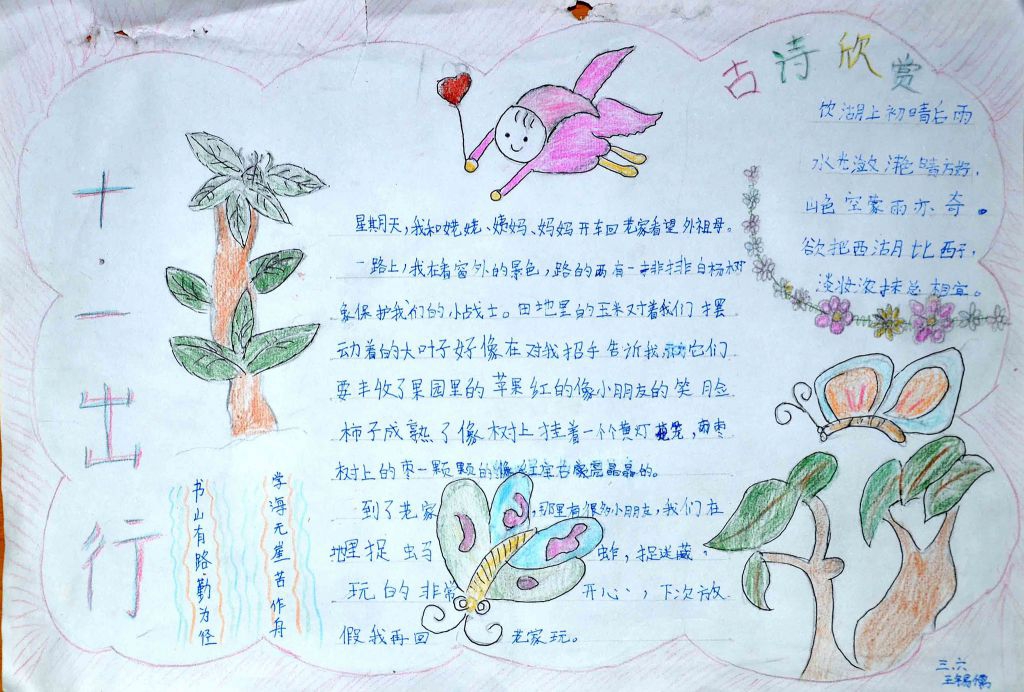 十·一出行
星期天，我和姥姥、姨妈、妈妈开车回老家看望外祖母。
一路上，我看着窗外的景色，路的两有一排排白杨树
象保护我们的小战士。田地里的玉米对着我们摆
动着的大叶子好像在对我招手告诉我它们
要丰收了果园里的苹果红的像小朋友的笑脸
柿子成熟了像树上挂着一个个黄灯笼，
树上的枣一颗颗的像红宝石晶晶的。
到了老家，那里有很多小朋友，我们在
地里捉蚂蚱，捉迷藏，
玩的非常开心、，下次放
假我再回老家玩。
书山有路勤为径
学海无崖苦作舟
古诗欣赏
饮湖上初晴后雨
水光潋滟晴方好，
山色空蒙雨亦奇。
欲把西湖比西子，
淡妆浓抹总相宜。
三.六